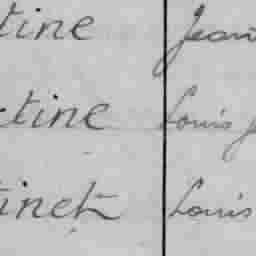 tine Jean
tine Louis J
inet Louis